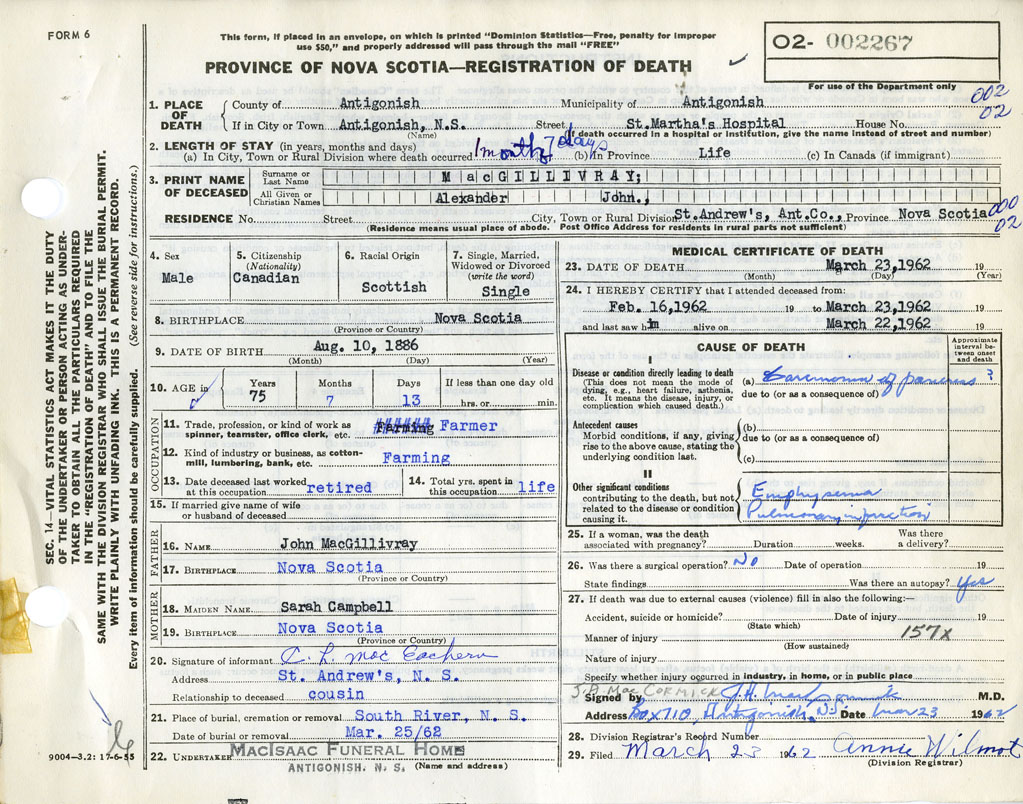 FORM 6
This form, if placed in an envelope, on which is printed "Dominion Statistics—Free, penalty for improper
use $50," and properly addressed will pass through the mail "FREE"
PROVINCE OF NOVA SCOTIA—REGISTRATION OF DEATH
O2- 002267
For use of the Department only
002
02
SEC. 14—VITAL STATISTICS ACT MAKES IT THE DUTY
OF THE UNDERTAKER OR PERSON ACTING AS UNDER-
TAKER TO OBTAIN ALL THE PARTICULARS REQUIRED
IN THE "REGISTRATION OF DEATH" AND TO FILE THE
SAME WITH THE DIVISION REGISTRAR WHO SHALL ISSUE THE BURIAL PERMIT.
WRITE PLAINLY WITH UNFADING INK. THIS IS A PERMANENT RECORD.
Every item of information should be carefully supplied. (See reverse side for instructions.)
1. PLACE OF DEATH
County of Antigonish Municipality of Antigonish
If in City or Town Antigonish, N.S. Street St.Martha's Hospital House No.
(Name) (If death occurred in a hospital or institution, give the name instead of street and number)
2. LENGTH OF STAY (in years, months and days)
(a) In City, Town or Rural Division where death occurred 1 month 7 days (b) in Province Life (c) In Canada (if immigrant)
3. PRINT NAME OF DECEASED
Surname or Last Name MacGILLIVRAY;
All Given or Christian Names Alexander John.,
RESIDENCE No. Street City, Town or Rural Division St.Andrew's, Ant.Co., Province Nova Scotia 000
02
(Residence means usual place of abode. Post Office Address for residents in rural parts not sufficient)
4. Sex
Male
5. Citizenship
(Nationality)
Canadian
6. Racial Origin
Scottish
7. Single, Married,
Widowed or Divorced
(write the word)
Single
8. BIRTHPLACE Nova Scotia
(Province or Country)
9. DATE OF BIRTH Aug. 10, 1886
(Month) (Day) (Year)
10. AGE in Years Months Days If less than one day old
75 7 13 hrs. or min.
OCCUPATION
11. Trade, profession, or kind of work as
spinner, teamster, office clerk, etc. Farming Farmer
12. Kind of industry or business, as cotton-
mill, lumbering, bank, etc. Farming
13. Date deceased last worked
at this occupation retired
14. Total yrs. spent in
this occupation life
15. If married give name of wife
or husband of deceased
FATHER
16. NAME John MacGillivray
17. BIRTHPLACE Nova Scotia
(Province or Country)
MOTHER
18. MAIDEN NAME Sarah Campbell
19. BIRTHPLACE Nova Scotia
(Province or Country)
20. Signature of informant C. L. MacEachern
Address St. Andrew's, N. S.
Relationship to deceased cousin
21. Place of burial, cremation or removal South River, N. S.
Date of burial or removal Mar. 25/62
22. UNDERTAKER MACISAAC FUNERAL HOME
ANTIGONISH. N. S. (Name and address)
9004—3.2: 17-6-55
MEDICAL CERTIFICATE OF DEATH
23. DATE OF DEATH March 23,1962 19
(Month) (Day) (Year)
24. I HEREBY CERTIFY that I attended deceased from:
Feb. 16,1962 19 to March 23,1962 19
and last saw him alive on March 22,1962 19
CAUSE OF DEATH
Approximate interval between onset and death
I
Disease or condition directly leading to death
(This does not mean the mode of
dying, e.g., heart failure, asthenia,
etc. It means the disease, injury, or
complication which caused death.)
(a) Carcinoma of pancreas ?
due to (or as a consequence of)
Antecedent causes
Morbid conditions, if any, giving
rise to the above cause, stating the
underlying condition last.
(b)
due to (or as a consequence of)
(c)
II
Other significant conditions
contributing to the death, but not
related to the disease or condition
causing it.
Emphysema
Pulmonary infarction
25. If a woman, was the death
associated with pregnancy? Duration weeks. Was there
a delivery?
26. Was there a surgical operation? No Date of operation 19
State findings Was there an autopsy? Yes
27. If death was due to external causes (violence) fill in also the following:—
Accident, suicide or homicide? Date of injury 19
(State which)
157X
Manner of injury
(How sustained)
Nature of injury
Specify whether injury occurred in industry, in home, or in public place
J.A. MacCORMICK
Signed by J.A. MacCormick M.D.
Address Box 710, Antigonish, N.S. Date Mar 23 1962
28. Division Registrar's Record Number
29. Filed March 23 1962 Annie Wilmot
(Division Registrar)